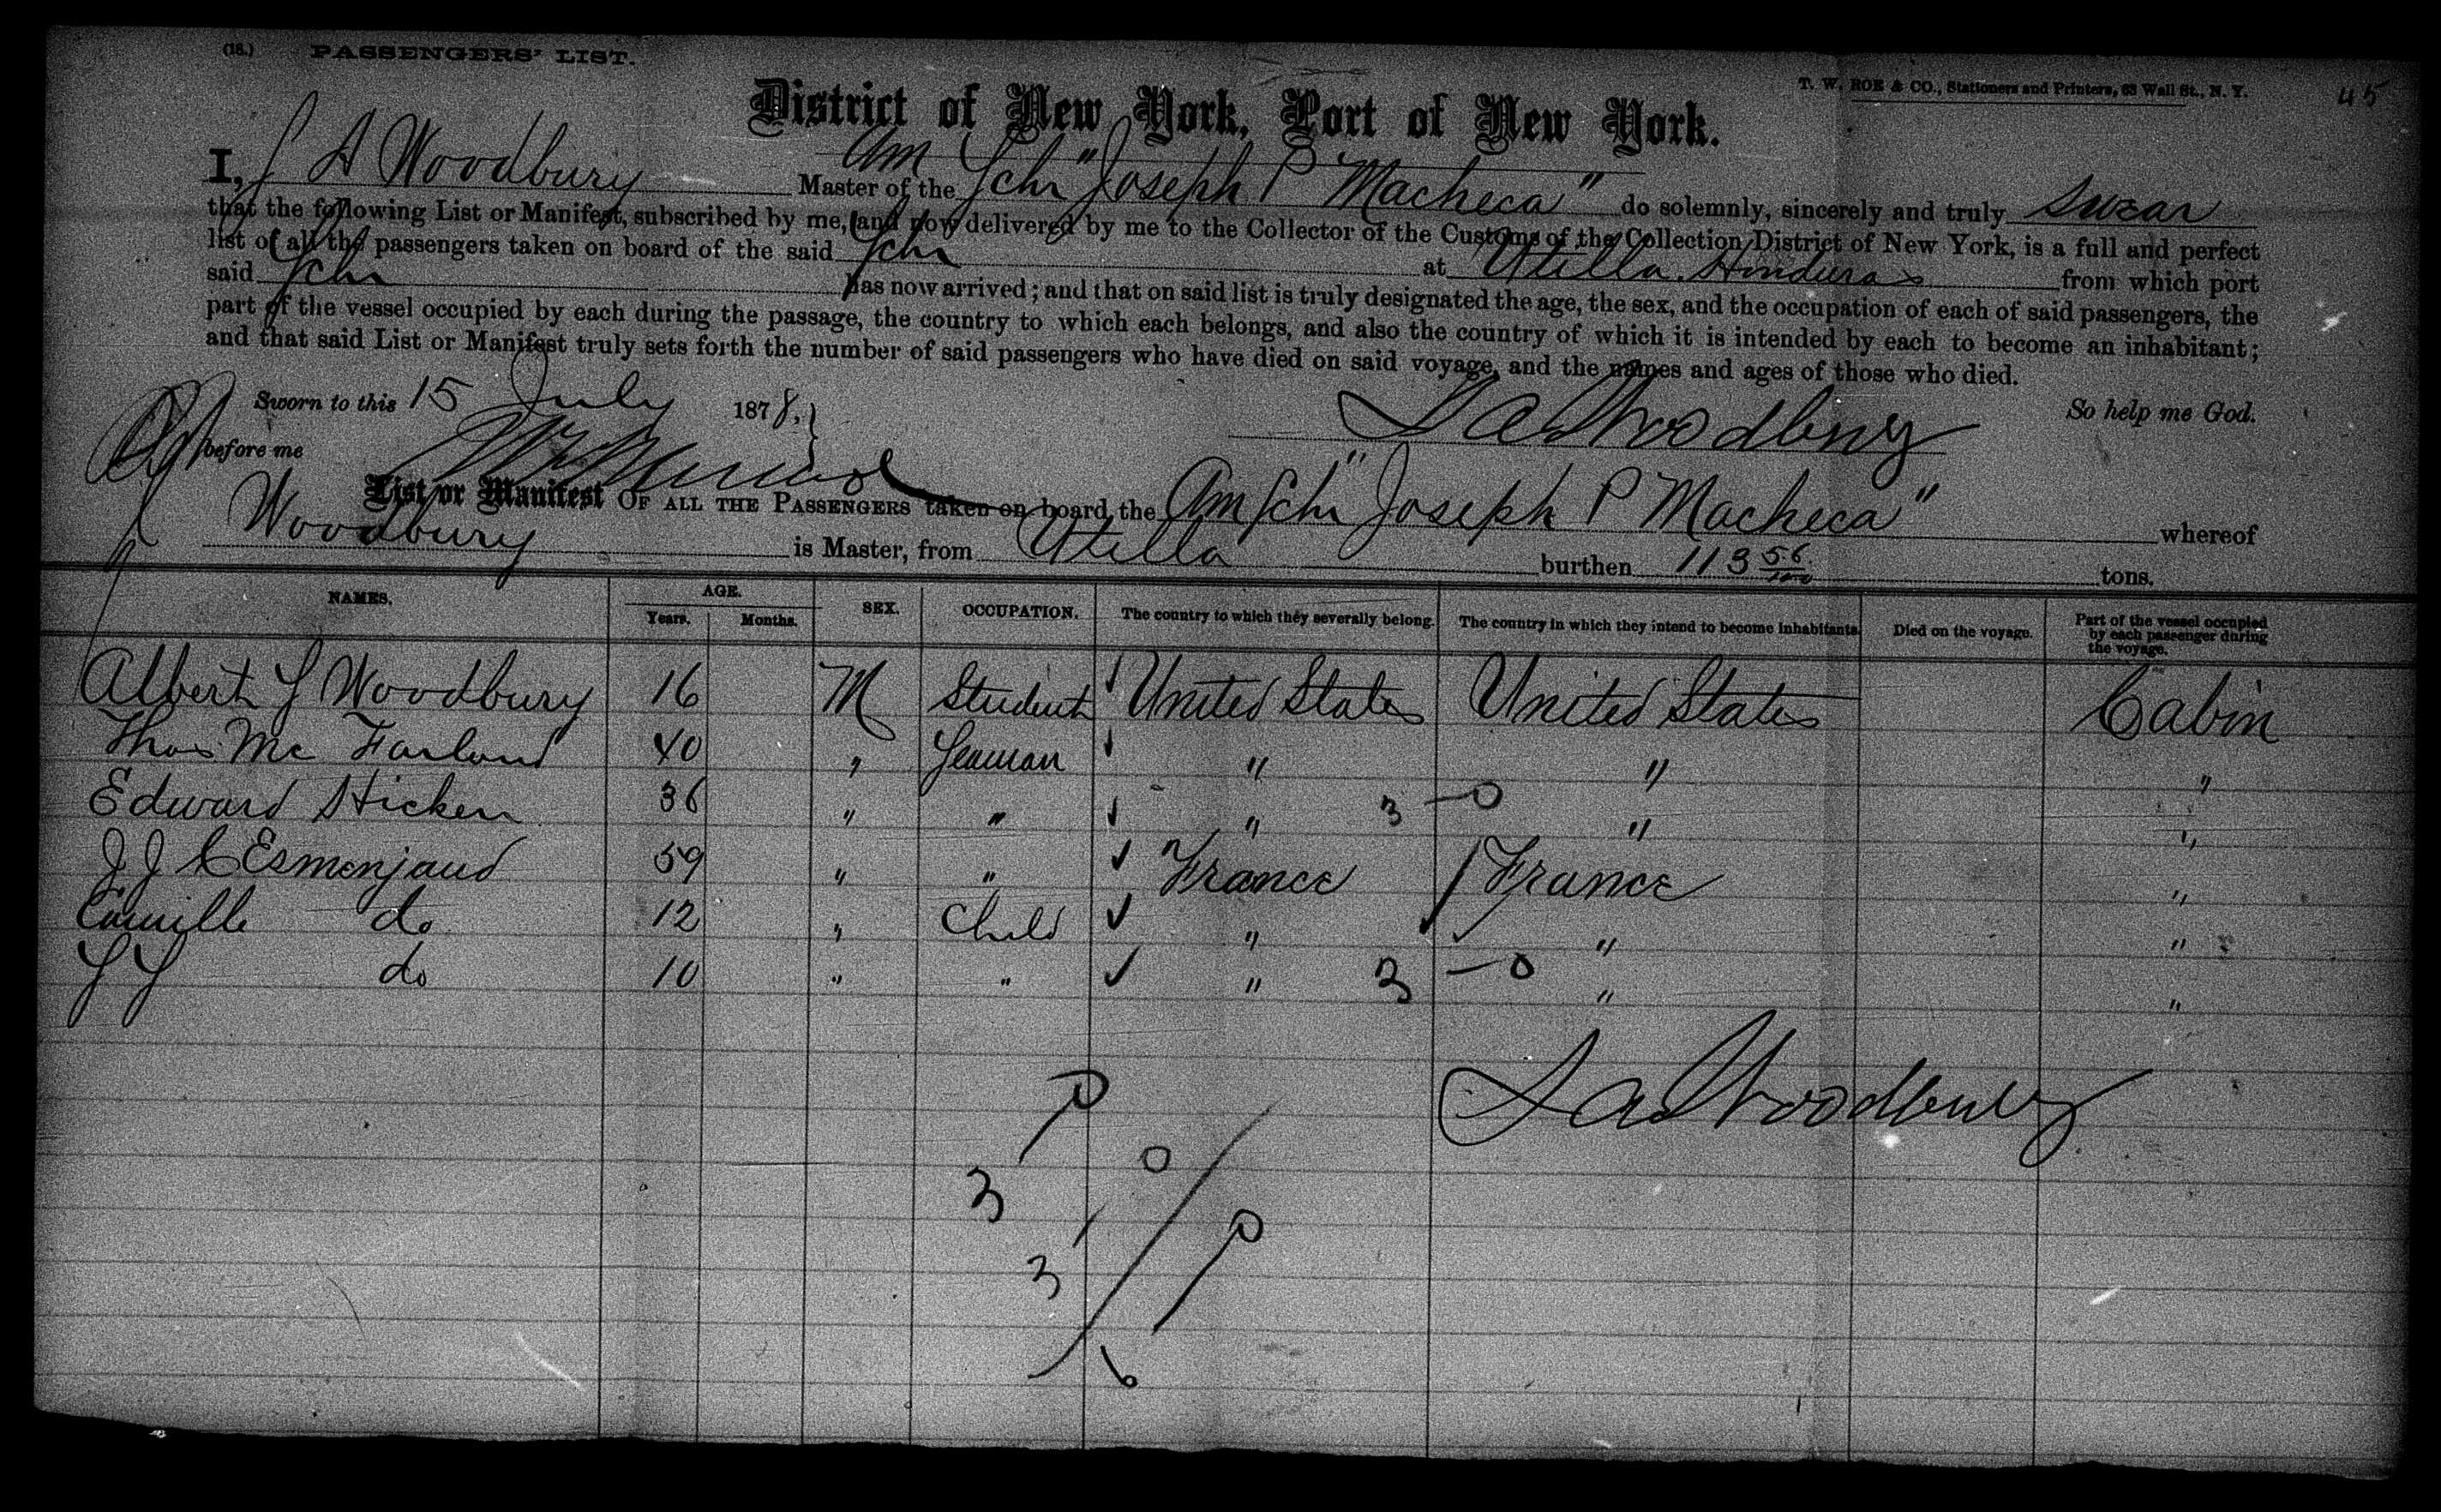 (18.) PASSENGERS' LIST.
T. W. ROE & CO., Stationers and Printers, 63 Wall St., N. Y. 45
District of New York, Port of New York.
I, L A Woodbury Master of the Am Schr "Joseph P Macheca" do solemnly, sincerely and truly swear
that the following List or Manifest, subscribed by me, and now delivered by me to the Collector of the Customs of the Collection District of New York, is a full and perfect
list of all the passengers taken on board of the said Schr at Utilla Honduras from which port
said Schr has now arrived; and that on said list is truly designated the age, the sex, and the occupation of each of said passengers, the
part of the vessel occupied by each during the passage, the country to which each belongs, and also the country of which it is intended by each to become an inhabitant;
and that said List or Manifest truly sets forth the number of said passengers who have died on said voyage, and the names and ages of those who died.
Sworn to this 15 July 1878, So help me God.
before me L A Woodbury
List or Manifest OF ALL THE PASSENGERS taken on board the Am Schr "Joseph P Macheca" whereof
Woodbury is Master, from Utilla burthen 113 56/100 tons.
NAMES. AGE. Years. Months. SEX. OCCUPATION. The country to which they severally belong. The country in which they intend to become inhabitants. Died on the voyage. Part of the vessel occupied by each passenger during the voyage.
Albert L Woodbury 16 M Student United States United States Cabin
Thos Mc Farland 40 " Seaman " " "
Edward Hicken 36 " " " 3 —0 " "
J J C Esmenjaud 59 " " France France "
Camille do 12 " Child " " "
L L do 10 " " " 3 —0 " "
L A Woodbury
P
3 0
3 P
6